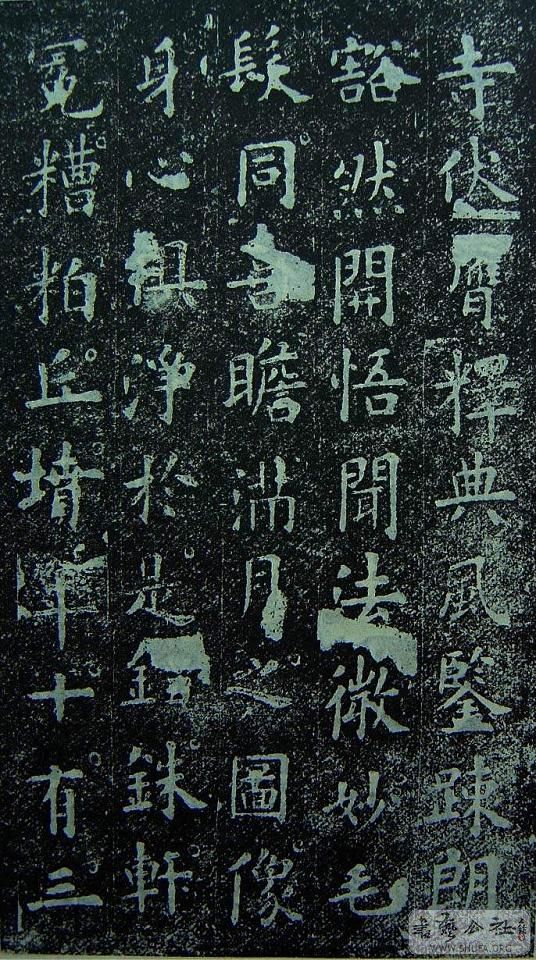 寺伏膺釋典風鑒踈朗
豁然開悟聞法微妙毛
髮同喜瞻滿月之圖像
身心俱淨於是錙銖軒
冕糟粕丘墳年十有三
書藝公社
WWW.SHUFA.ORG